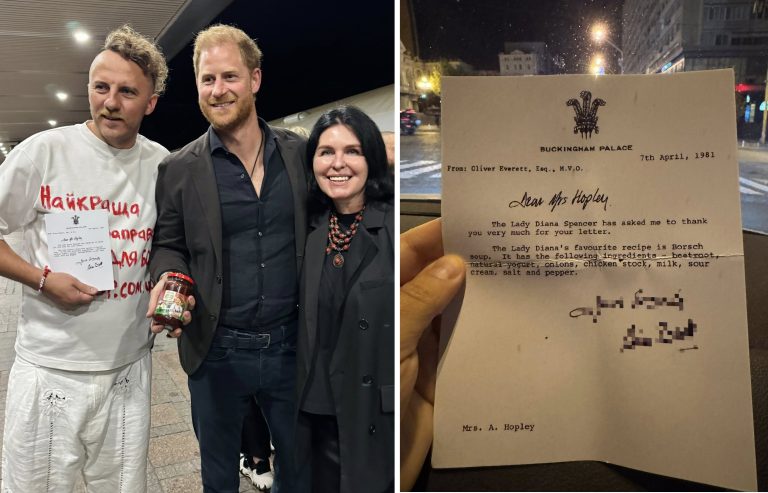 Найкраща
заправ
ДЛЯ БО
.com.ua
Dear Mrs Hopley
BUCKINGHAM PALACE
7th April, 1981
From: Oliver Everett, Esq., M.V.O.
Dear Mrs Hopley.
The Lady Diana Spencer has asked me to thank
you very much for your letter.
The Lady Diana's favourite recipe is Borsch
soup. It has the following ingredients - beetroot,
natural yogurt, onions, chicken stock, milk, sour
cream, salt and pepper.
Mrs. A. Hopley